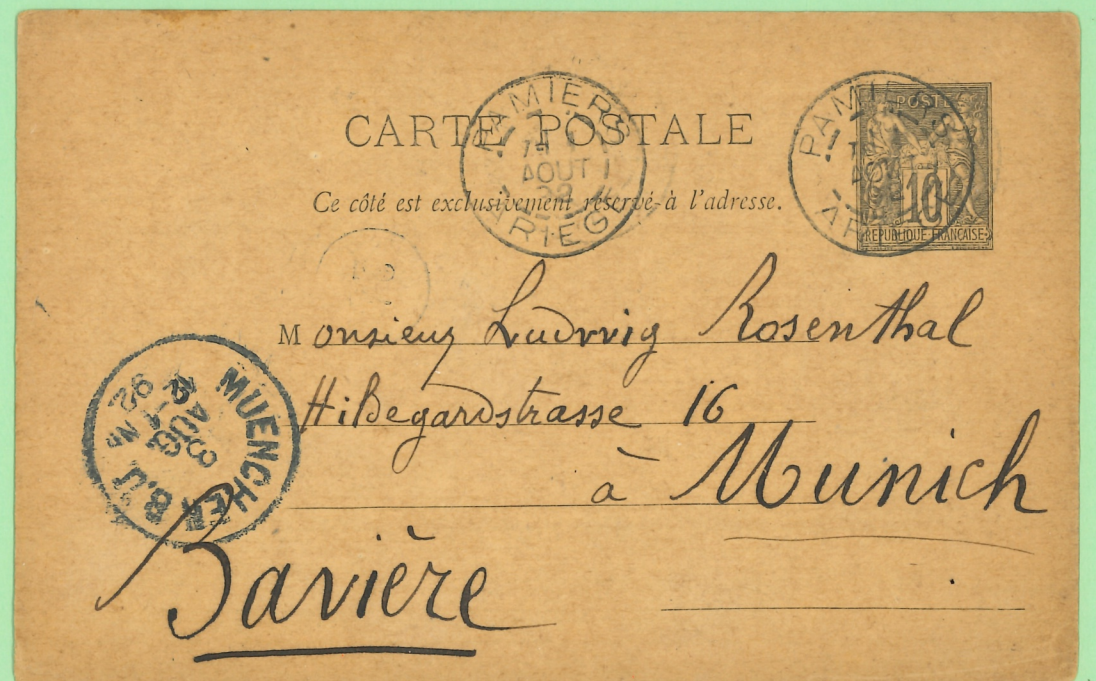 CARTE POSTALE
Ce côté est exclusivement réservé à l'adresse.
PAMIERS
AOUT
92
ARIEGE
PAMIERS
POSTES
10
REPUBLIQUE FRANCAISE
Monsieur Ludwig Rosenthal
Hildegardstrasse 16
à Munich
Bavière
MUENCHEN
3 AUG
92
B.U.